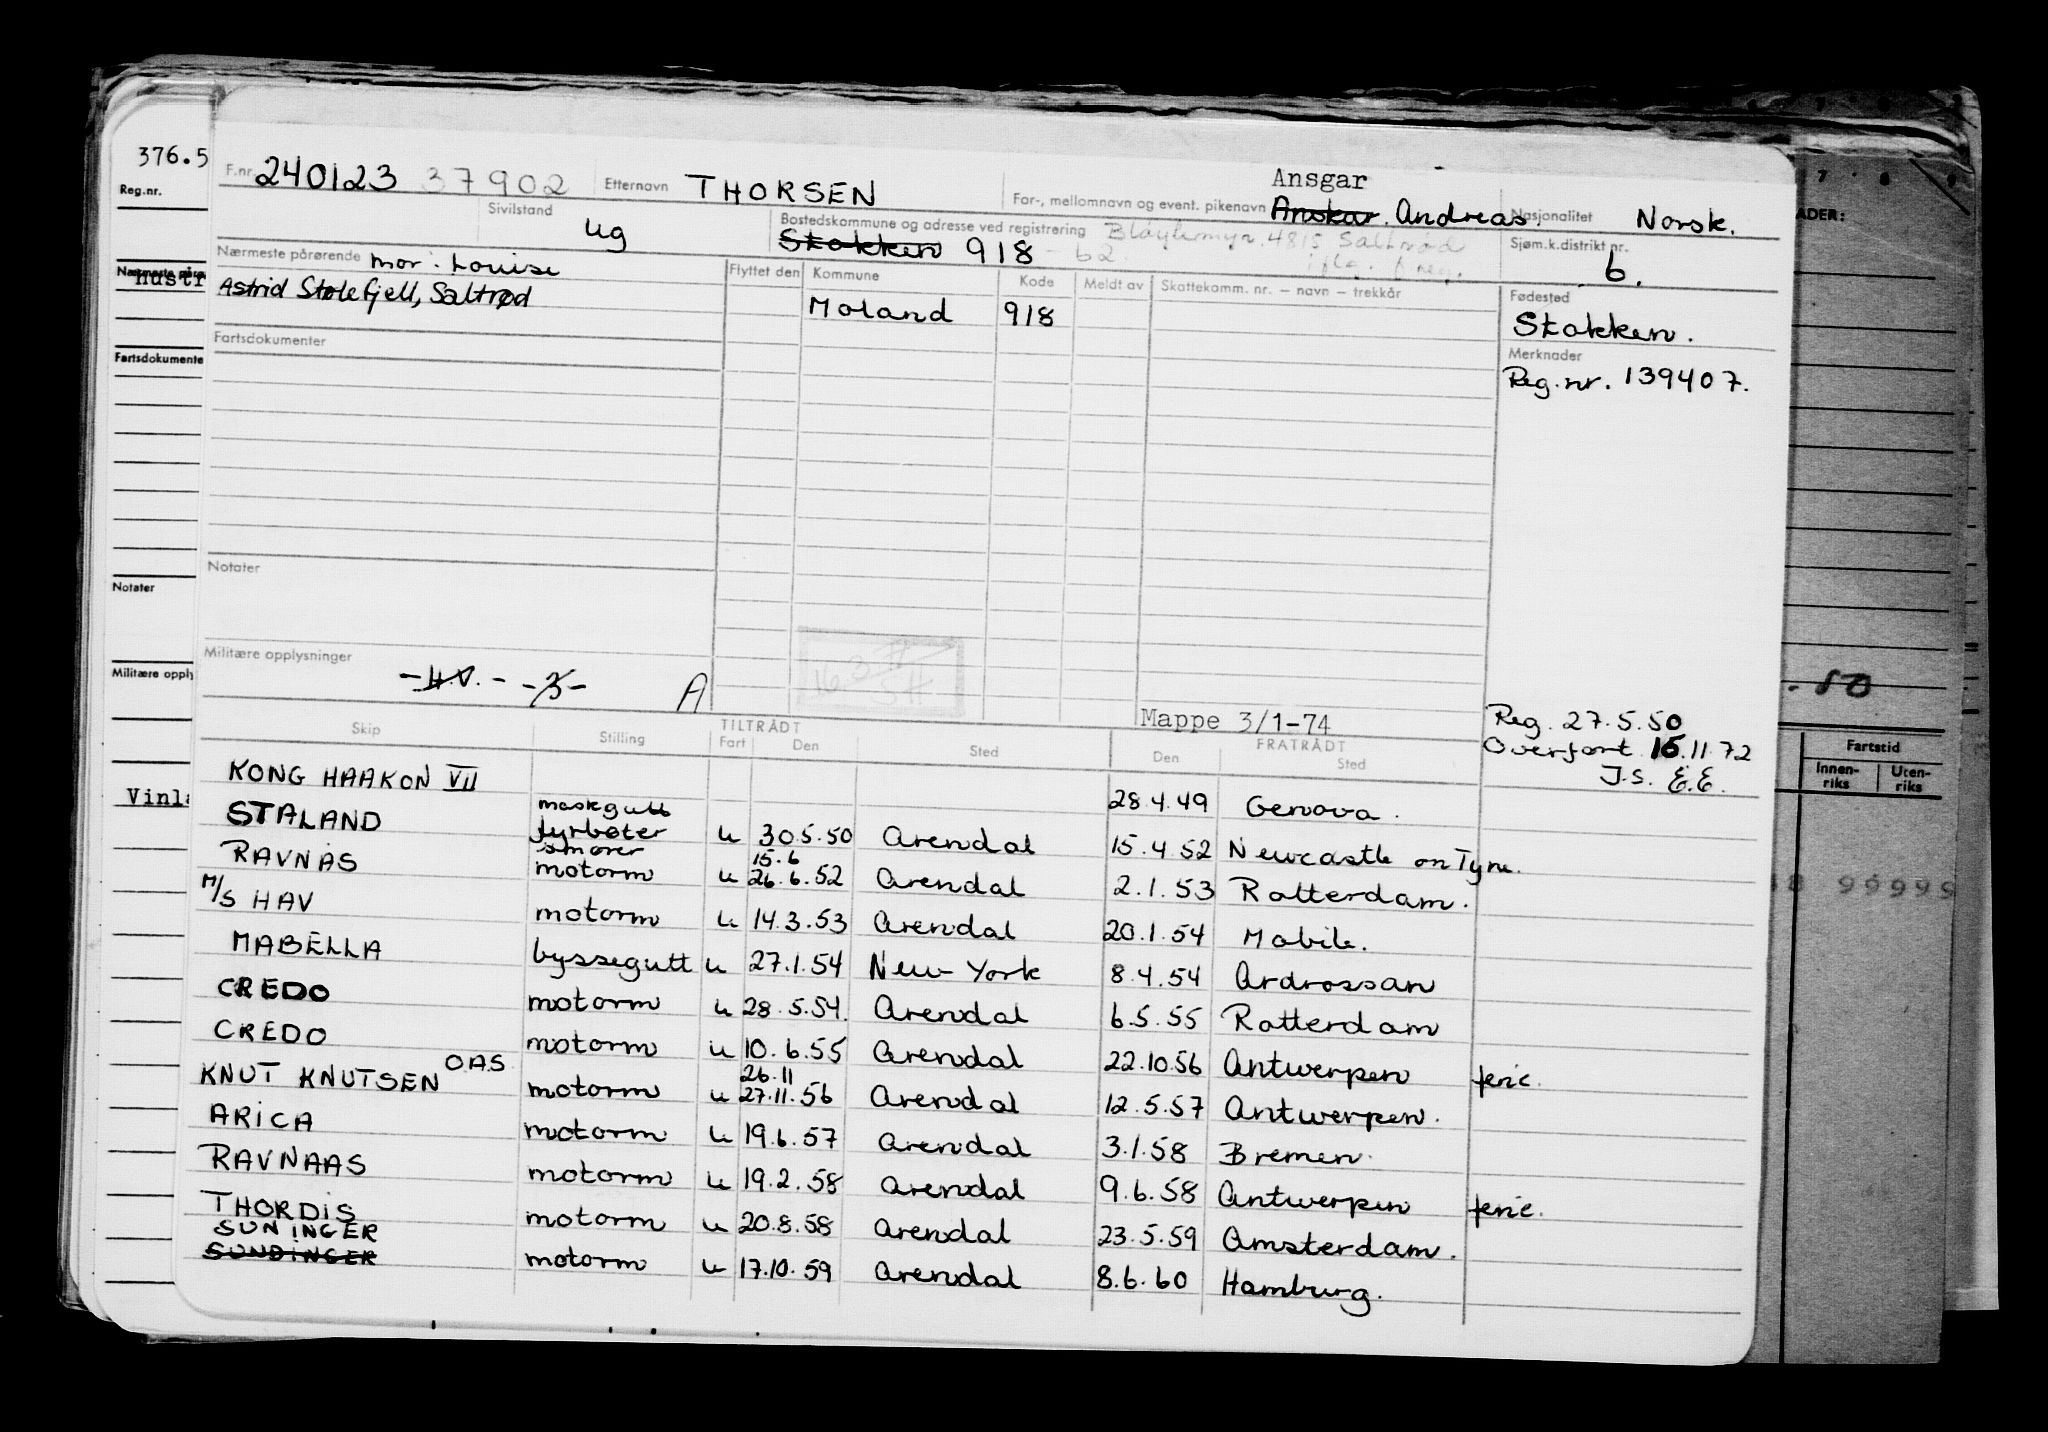 376.5
Reg.nr.
Nærmeste påre
Hustr
Fartsdokumente
Notater
Militære opply
Vinla
F.nr. 240123 37902 Etternavn THORSEN For-, mellomnavn og event. pikenavn Ansgar Anskar. Andreas. Nasjonalitet Norsk.
Sivilstand ug Bostedskommune og adresse ved registrering Stokken 918 - 62 4815 Saltrød Sjøm.k.distrikt nr. 6.
Nærmeste pårørende mor: Louise
Astrid Stolefjell, Saltrød
Flyttet den Kommune Kode Meldt av Skattekomm. nr. – navn – trekkår
Moland 918
Fødested
Stokken.
Merknader
Reg.nr. 139407.
Fartsdokumenter
Notater
Militære opplysninger -H.V.- -3- A
16.3
Mappe 3/1-74
Reg. 27.5.50
Overført 15.11.72
J.S. E.E.
Skip Stilling TILTRÅDT Fart Den Sted FRATRÅDT Den Sted
KONG HAAKON VII 28.4.49 Genova.
STALAND maskgutt fyrbøter smører u 30.5.50 Arendal 15.4.52 Newcastle on Tyne.
RAVNÅS motorm u 15.6 26.6.52 Arendal 2.1.53 Rotterdam.
M/S HAV motorm u 14.3.53 Arendal 20.1.54 Mobile.
MABELLA byssegutt u 27.1.54 New York 8.4.54 Ardrossan
CREDO motorm u 28.5.54. Arendal 6.5.55 Rotterdam
CREDO motorm u 10.6.55 Arendal 22.10.56 Antwerpen feric.
KNUT KNUTSEN O.A.S. motorm u 26.11 27.11.56 Arendal 12.5.57 Antwerpen.
ARICA motorm u 19.6.57 Arendal 3.1.58 Bremen.
RAVNAAS motorm u 19.2.58 Arendal 9.6.58 Antwerpen feric.
THORDIS motorm u 20.8.58 Arendal 23.5.59 Amsterdam.
SUNINGER SUNDINGER motorm u 17.10.59 Arendal 8.6.60 Hamburg.
7 8 9
ADER:
-50
Fartstid
Innen-riks Uten-riks
99999